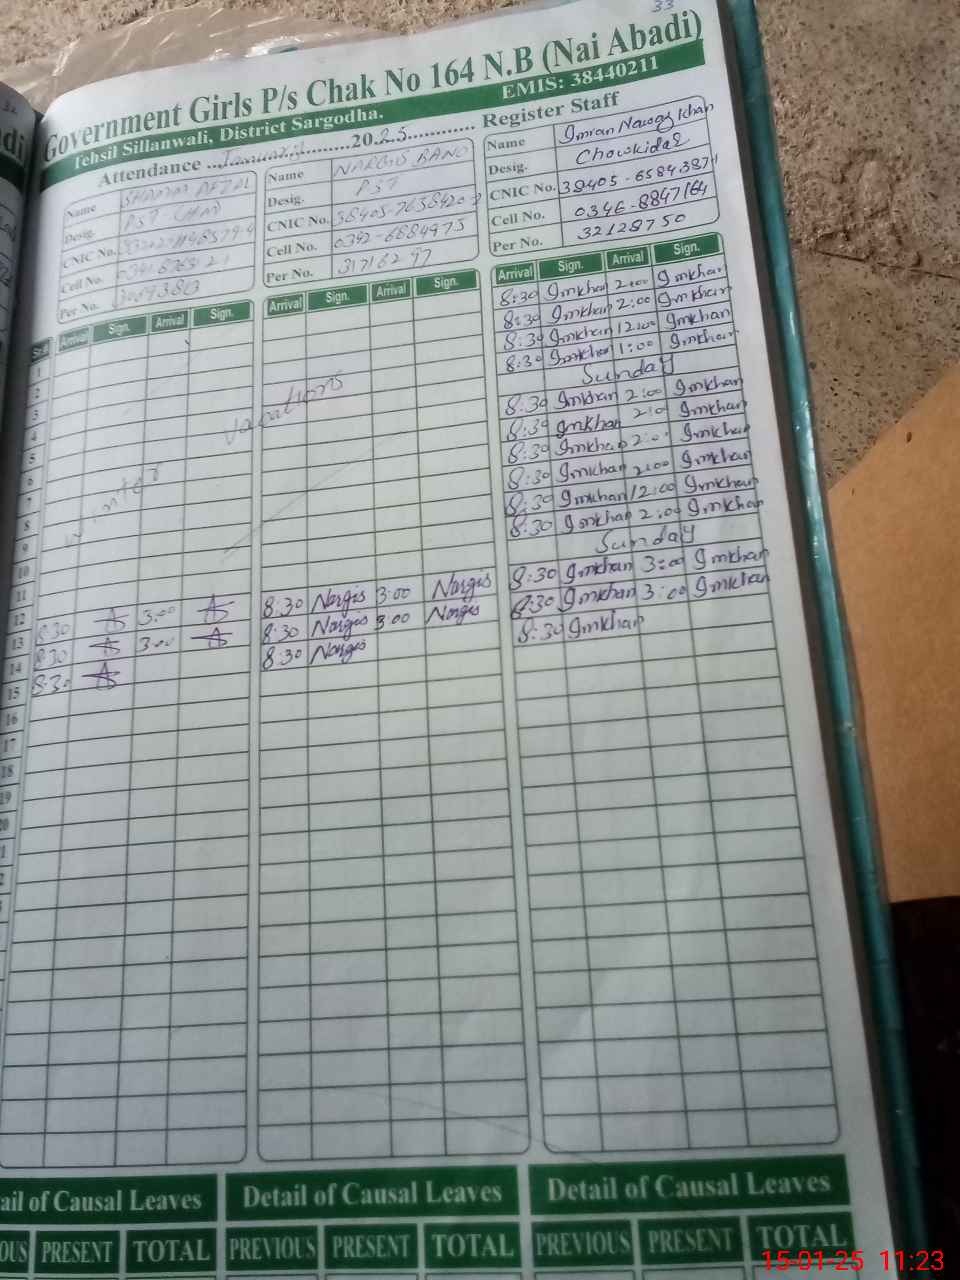 33
Government Girls P/s Chak No 164 N.B (Nai Abadi)
Tehsil Sillanwali, District Sargodha.
EMIS: 38440211
Attendance ..January..........2025............ Register Staff
Name SHAMIM AFZAL
Desig. PST
CNIC No.
Cell No.
Per No.
Name NARGIS BANO
Desig. PST
CNIC No.
Cell No. 0342-6884975
Per No. 31716297
Name Imran Nawaz Khan
Desig. Chowkidar
CNIC No. 38405-6584387-1
Cell No. 0346-8847164
Per No. 32128750
Sr.# Arrival Sign. Arrival Sign.
Arrival Sign. Arrival Sign.
Arrival Sign. Arrival Sign.
1 8:30 Imkhan 2:00 Imkhan
2 8:30 Imkhan 2:00 Imkhan
3 8:30 Imkhan 12:00 Imkhan
4 8:30 Imkhan 1:00 Imkhan
5 Sunday
6 8:30 Imkhan 2:00 Imkhan
7 8:30 Imkhan 2:0 Imkhan
8 8:30 Imkhan 2:0 Imkhan
9 8:30 Imkhan 2:00 Imkhan
10 8:30 Imkhan 12:00 Imkhan
11 8:30 Imkhan 2:00 Imkhan
Winter vacations
12 Sunday
13 8:30 A 3:00 A 8:30 Nargis 3:00 Nargis 8:30 Imkhan 3:00 Imkhan
14 8:30 A 3:00 A 8:30 Nargis 3:00 Nargis 8:30 Imkhan 3:00 Imkhan
15 8:30 A 8:30 Nargis 8:30 Imkhan
16
17
18
19
20
ail of Causal Leaves
Detail of Causal Leaves
Detail of Causal Leaves
OUS PRESENT TOTAL
PREVIOUS PRESENT TOTAL
PREVIOUS PRESENT TOTAL
15-01-25 11:23